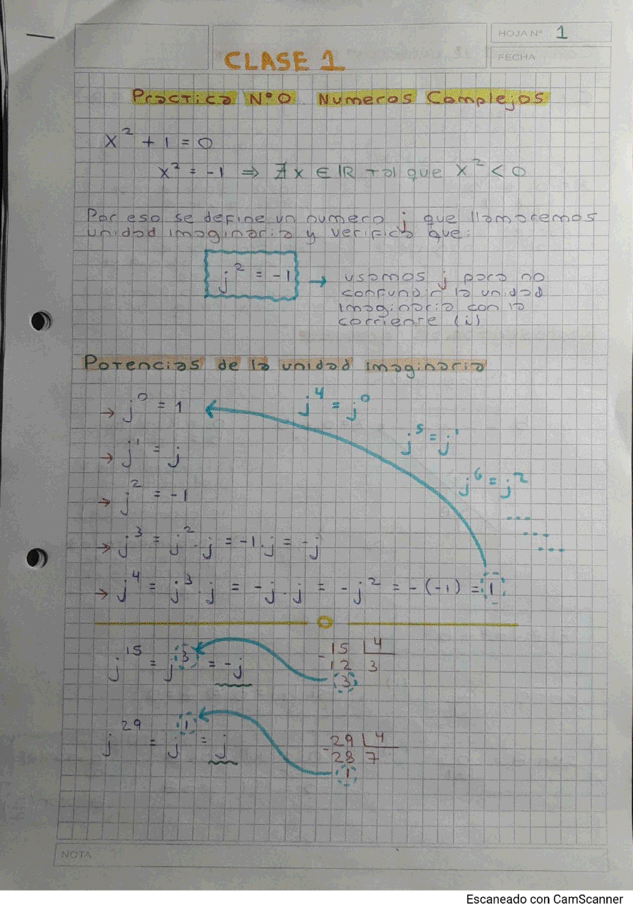 HOJA Nº 1
FECHA
CLASE 1
Practica Nº0 Numeros Complejos
x² + 1 = 0
x² = -1 ⇒ ∄ x ∈ ℝ tal que x² < 0
Por eso se define un numero j que llamaremos
unidad imaginaria y verifica que:
j² = -1 → usamos j para no
confundir la unidad
imaginaria con la
corriente (i)
Potencias de la unidad imaginaria
→ j⁰ = 1
j⁴ = j⁰
→ j¹ = j
j⁵ = j¹
→ j² = -1
j⁶ = j²
...
...
→ j³ = j² . j = -1 . j = -j
→ j⁴ = j³ . j = -j . j = -j² = -(-1) = 1
j¹⁵ = j³ = -j
-15 | 4
12 3
3
j²⁹ = j¹ = j
-29 | 4
28 7
1
NOTA
Escaneado con CamScanner